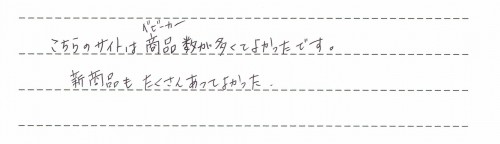 ベビーカー
こちらのサイトは商品数が多くてよかったです。
新商品もたくさんあってよかった.